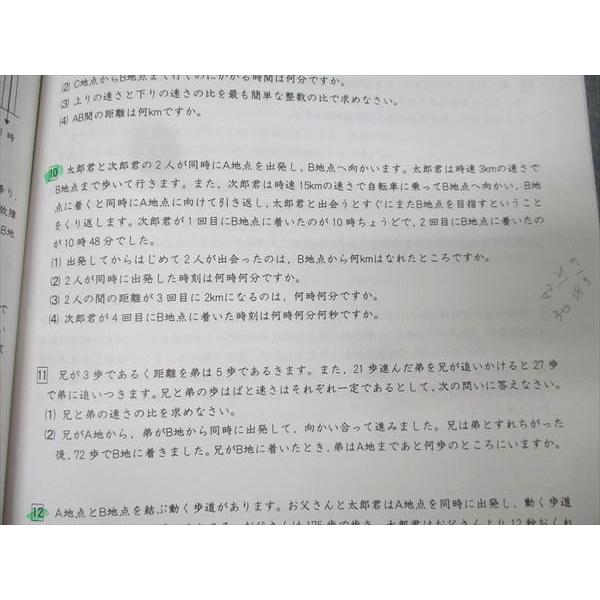 (2) C地点からB地点まで行くのにかかる時間は何分ですか。
(3) 上りの速さと下りの速さの比を最も簡単な整数の比で求めなさい。
(4) AB間の距離は何kmですか。
10 太郎君と次郎君の2人が同時にA地点を出発し，B地点へ向かいます。太郎君は時速3kmの速さで
B地点まで歩いて行きます。また，次郎君は時速15kmの速さで自転車に乗ってB地点へ向かい，B地
点に着くと同時にA地点に向けて引き返し，太郎君と出会うとすぐにまたB地点を目指すということ
をくり返します。次郎君が1回目にB地点に着いたのが10時ちょうどで，2回目にB地点に着いたの
が10時48分でした。
(1) 出発してからはじめて2人が出会ったのは，B地点から何kmはなれたところですか。
(2) 2人が同時に出発した時刻は何時何分ですか。
(3) 2人の間の距離が3回目に2kmになるのは，何時何分ですか。
(4) 次郎君が4回目にB地点に着いた時刻は何時何分何秒ですか。
11 兄が3歩であるく距離を弟は5歩であるきます。また，21歩進んだ弟を兄が追いかけると27歩
で弟に追いつきます。兄と弟の歩はばと速さはそれぞれ一定であるとして，次の問いに答えなさい。
(1) 兄と弟の速さの比を求めなさい。
(2) 兄がA地から，弟がB地から同時に出発して，向かい合って進みました。兄は弟とすれちがった
後，72歩でB地に着きました。兄がB地に着いたとき，弟はA地まであと何歩のところにいますか。
12 A地点とB地点を結ぶ動く歩道があります。お父さんと太郎君はA地点を同時に出発し，動く歩道